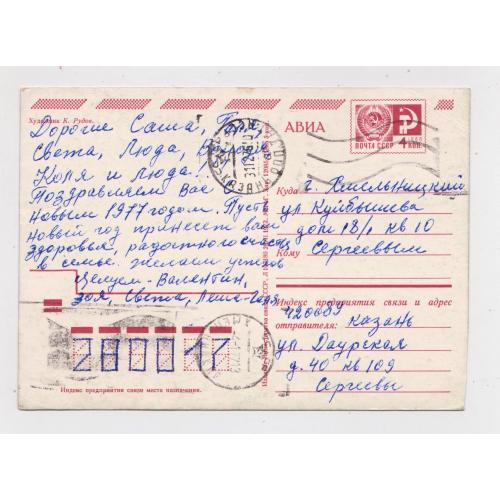 Художник К. Рудов.
Дорогие Саша,
Света, Люда,
Коля и Люда...
Поздравляем Вас с
Новым 1977 годом. Пусть
Новый год принесет вам
здоровья, радостного счастья
в семье. Желаем успехов
Целуем - Валентин,
Зоя, Света,
280017
Индекс предприятия связи места назначения.
АВИА
ПОЧТА СССР 4 КОП.
Куда г. Хмельницкий
ул Куйбышева
дом 18/1 кв 10
Кому Сергеевым
Индекс предприятия связи и адрес
отправителя: 420089
Казань
ул. Даурская
д. 40 кв 109
Сергеевы